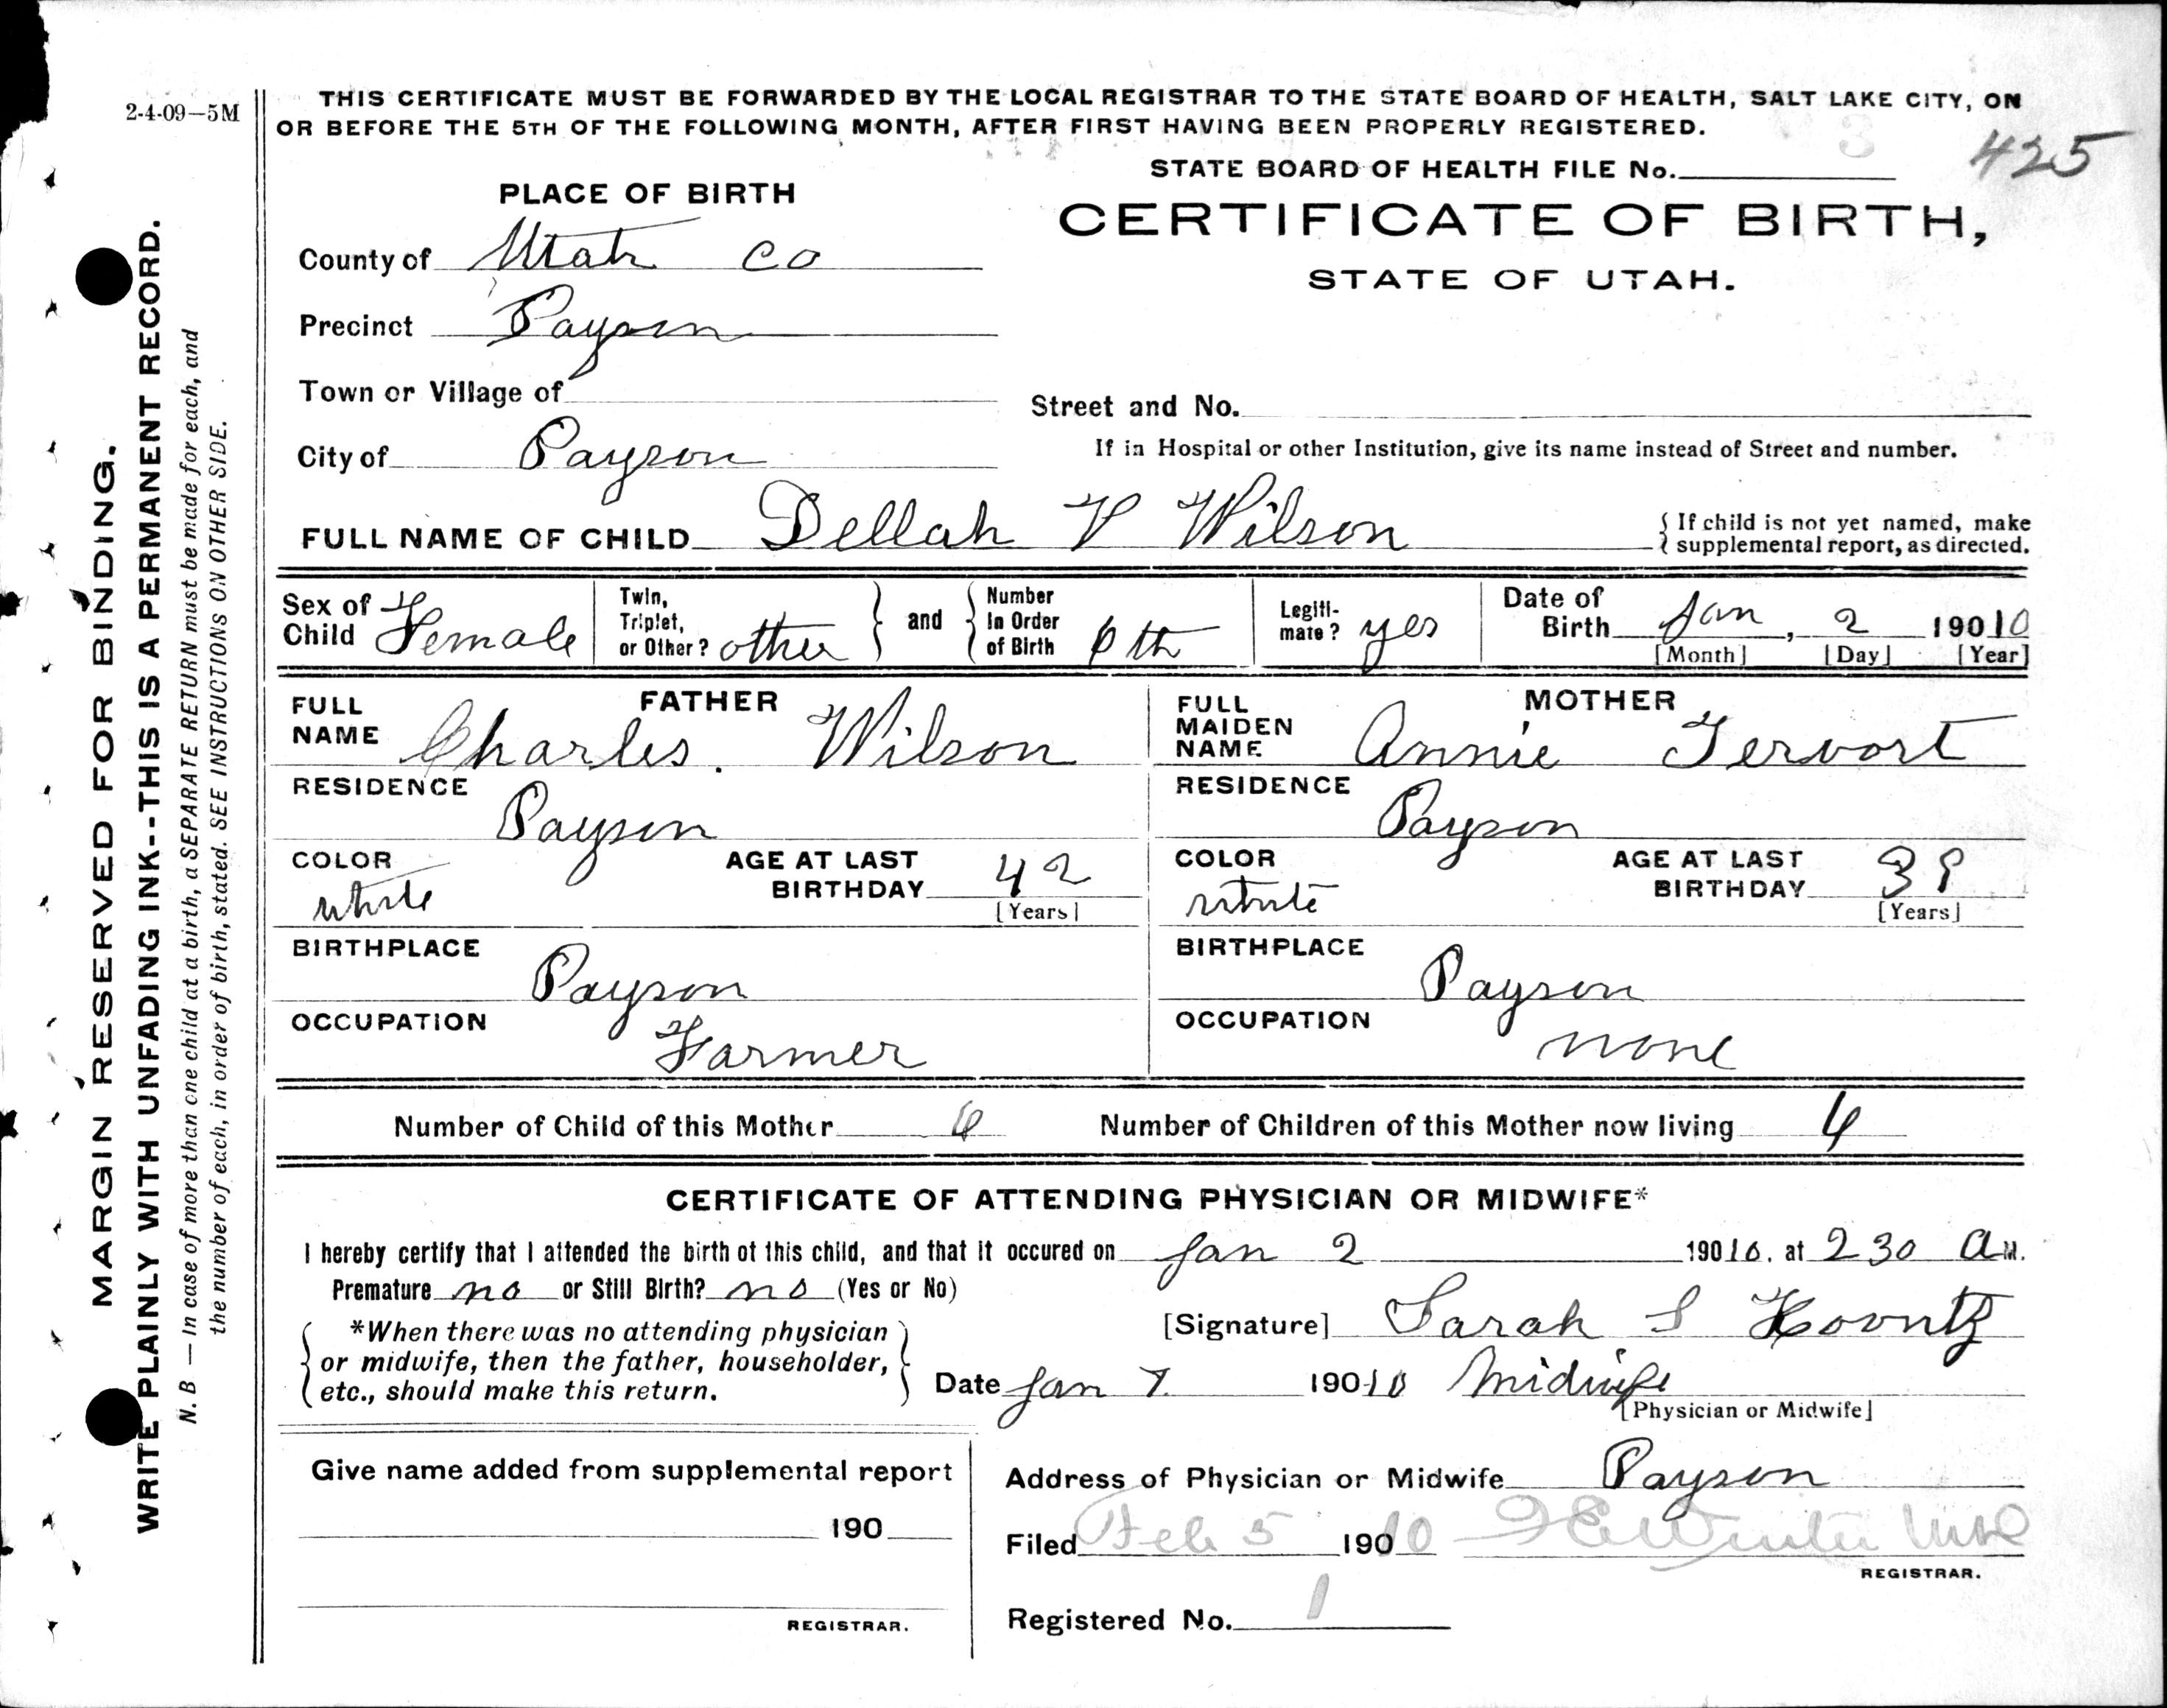 2-4-09—5M
THIS CERTIFICATE MUST BE FORWARDED BY THE LOCAL REGISTRAR TO THE STATE BOARD OF HEALTH, SALT LAKE CITY, ON
OR BEFORE THE 5TH OF THE FOLLOWING MONTH, AFTER FIRST HAVING BEEN PROPERLY REGISTERED.
425
STATE BOARD OF HEALTH FILE No.
PLACE OF BIRTH
CERTIFICATE OF BIRTH,
STATE OF UTAH.
County of Utah Co
Precinct Payson
Town or Village of
Street and No.
City of Payson
If in Hospital or other Institution, give its name instead of Street and number.
FULL NAME OF CHILD Dellah V Wilson
{ If child is not yet named, make
supplemental report, as directed.
Sex of Child Female
Twin, Triplet, or Other? other } and { Number In Order of Birth 6th
Legiti-mate? yes
Date of Birth Jan, 2 190 10
[Month] [Day] [Year]
FATHER
FULL NAME Charles. Wilson
RESIDENCE
Payson
COLOR white
AGE AT LAST BIRTHDAY 42
[Years]
BIRTHPLACE
Payson
OCCUPATION
Farmer
MOTHER
FULL MAIDEN NAME Annie Tervort
RESIDENCE
Payson
COLOR white
AGE AT LAST BIRTHDAY
[Years]
BIRTHPLACE
Payson
OCCUPATION
none
Number of Child of this Mother
Number of Children of this Mother now living 4
CERTIFICATE OF ATTENDING PHYSICIAN OR MIDWIFE*
I hereby certify that I attended the birth of this child, and that it occured on Jan 2 190 10. at 2 30 A M.
Premature no or Still Birth? no (Yes or No)
[Signature] Sarah S Koontz
{ *When there was no attending physician
or midwife, then the father, householder,
etc., should make this return. }
Date Jan 7. 190 10 Midwife
[Physician or Midwife]
Give name added from supplemental report
190
REGISTRAR.
Address of Physician or Midwife Payson
Filed Feb 5 190 10
REGISTRAR.
Registered No. 1
MARGIN RESERVED FOR BINDING.
WRITE PLAINLY WITH UNFADING INK--THIS IS A PERMANENT RECORD.
N. B — In case of more than one child at a birth, a SEPARATE RETURN must be made for each, and
the number of each, in order of birth, stated. SEE INSTRUCTIONS ON OTHER SIDE.